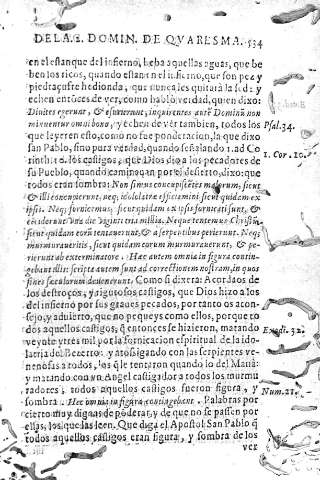 DE LA 2. DOMIN. DE QVARESMA. 534
en el estanque del infierno, beba aquellas aguas, que be
ben los ricos, quando estan en el infierno, que son pez y
piedraçufre hedionda, que nunca les quitará la sed: y
echen entóces de ver, como habló verdad, quien dixo:
Diuites eguerunt, & esurierunt, inquirentes autē Dominū non
minuentur omni bono, y echen de ver tambien, todos los
que leyeren esto, como no fue ponderacion, la que dixo
san Pablo, sino pura verdad, quando señalando 1. ad Co
rinth. 10. los castigos, que Dios dio a los pecadores de
su Pueblo, quando caminauan por el desierto, dixo: que
todos eran sombra: Non simus concupiscētes malorum, sicut
& illi concupierunt, neq; idololatræ efficiamini sicut quidam ex
ipsis. Neq; fornicemur, sicut quidam ex ipsis fornicati sunt, &
ceciderunt vna die viginti tria millia. Neque tentemus Christū,
sicut quidam eorū tentauerūt, & a serpentibus perierunt. Neq;
murmuraueritis, sicut quidam eorum murmurauerunt, & pe-
rierunt ab exterminatore. Hæc autem omnia in figura contin-
gebant illis: scripta autem sunt ad correctionem nostram, in quos
fines sæculorum deuenerunt. Como si dixera: Acordaos de
los destroços, y rigurosos castigos, que Dios hizo a los
del infierno por sus graues pecados, por tanto os acon-
sejo, y aduierto, que no pequeys como ellos, porque to
dos aquellos castigos, q̄ entonces se hizieron, matando
veynte y tres mil por la fornicacion espiritual de la ido-
latria del Bezerro. y atosigando con las serpientes ve-
nenosas a todos, los q̄ le tentaron quando lo del Maná:
y matando con vn Angel castigador a todos los murmu
radores; todos aquellos castigos fueron figura, y
sombra. Hæc omnia in figura contingebant. Palabras por
cierto muy dignas de pōderar, y de que no se passen por
ellas, los que las leen. Que diga el Apostol San Pablo q̄
todos aquellos castigos eran figura, y sombra de los
ver
Psal. 34.
1. Cor. 10.
Exodi. 32.
Num. 21.